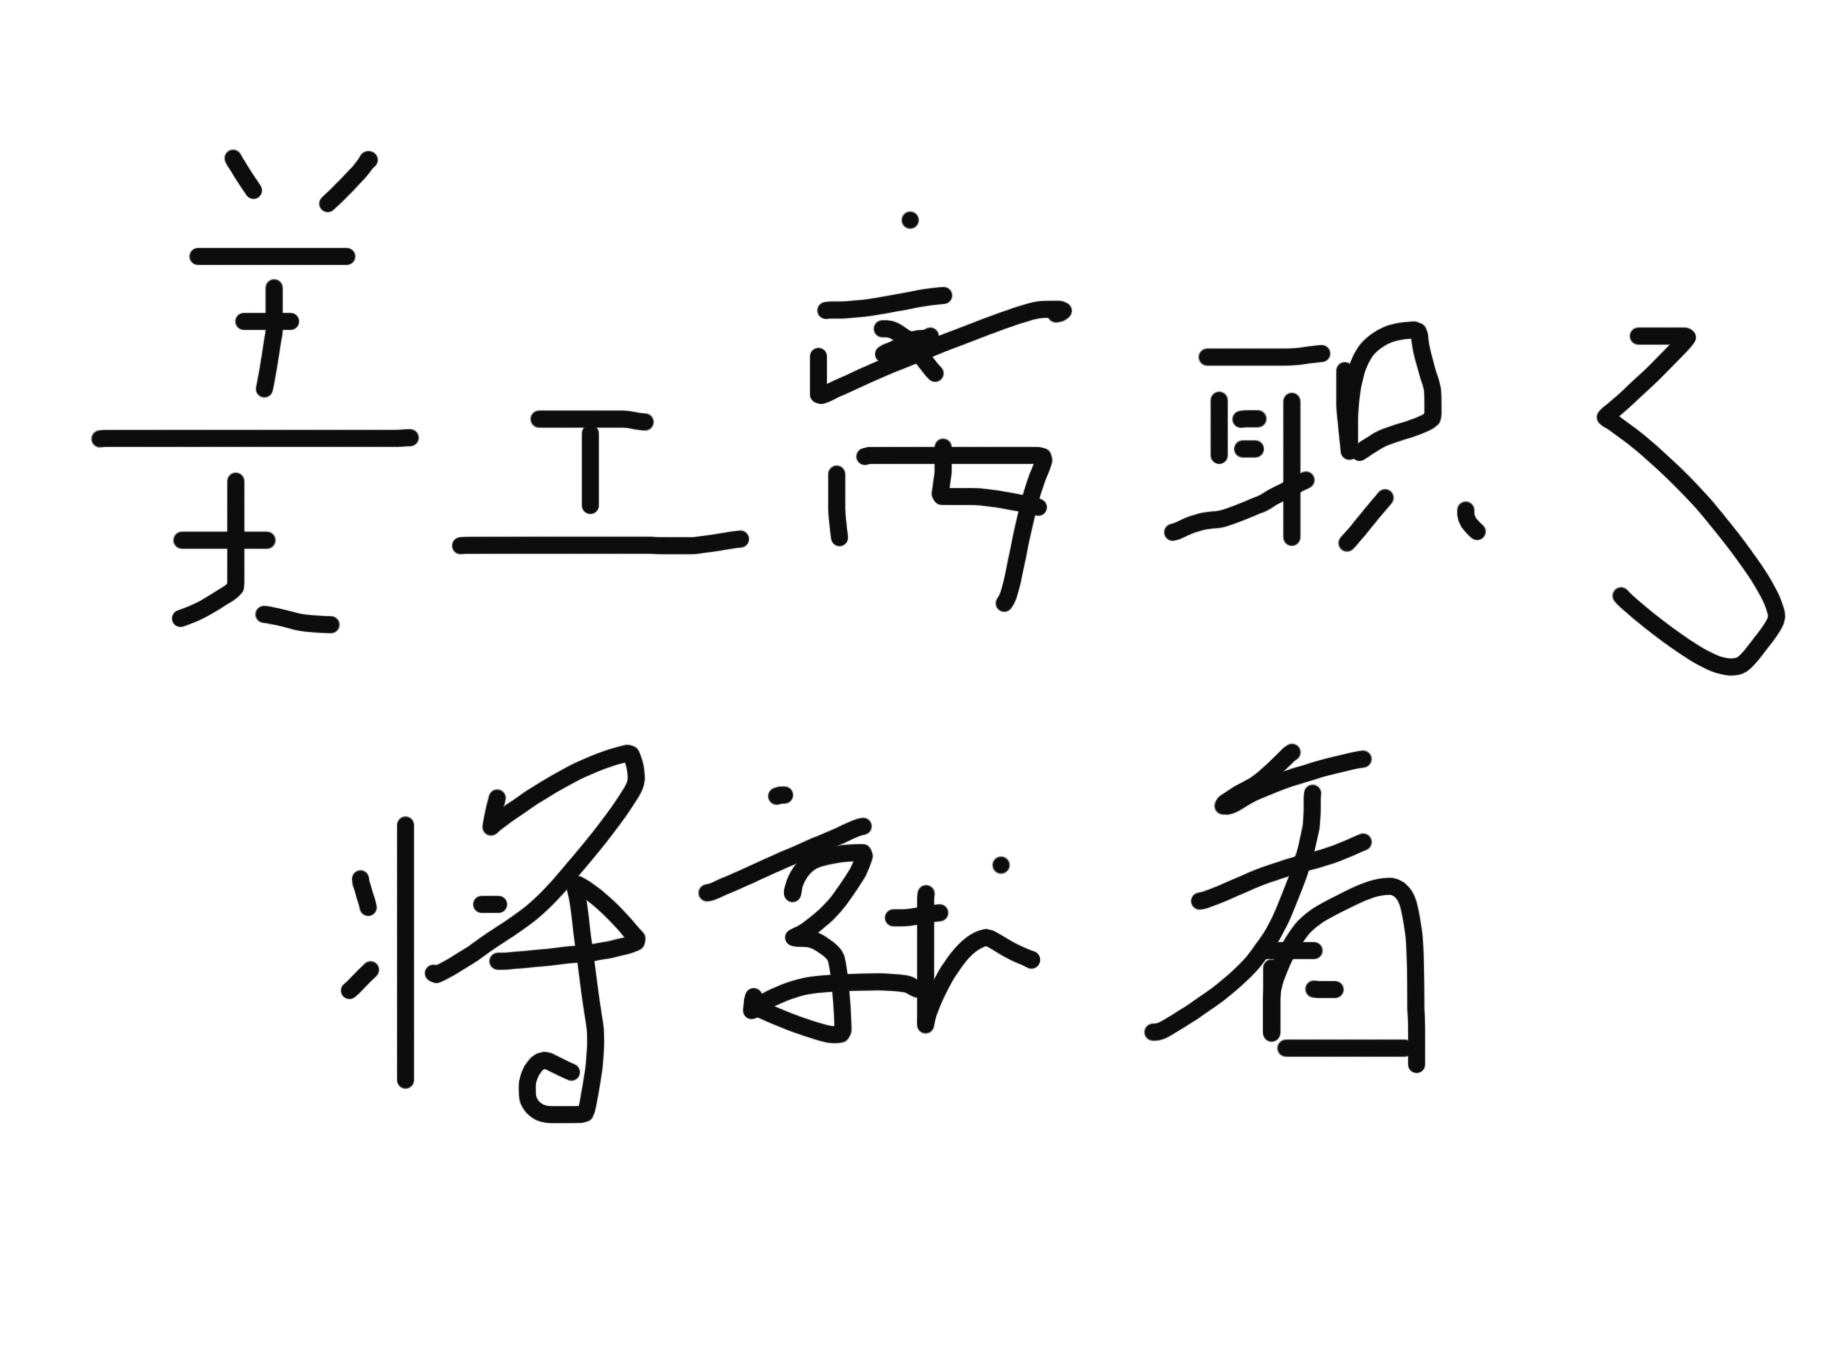 美工离职了
将就看